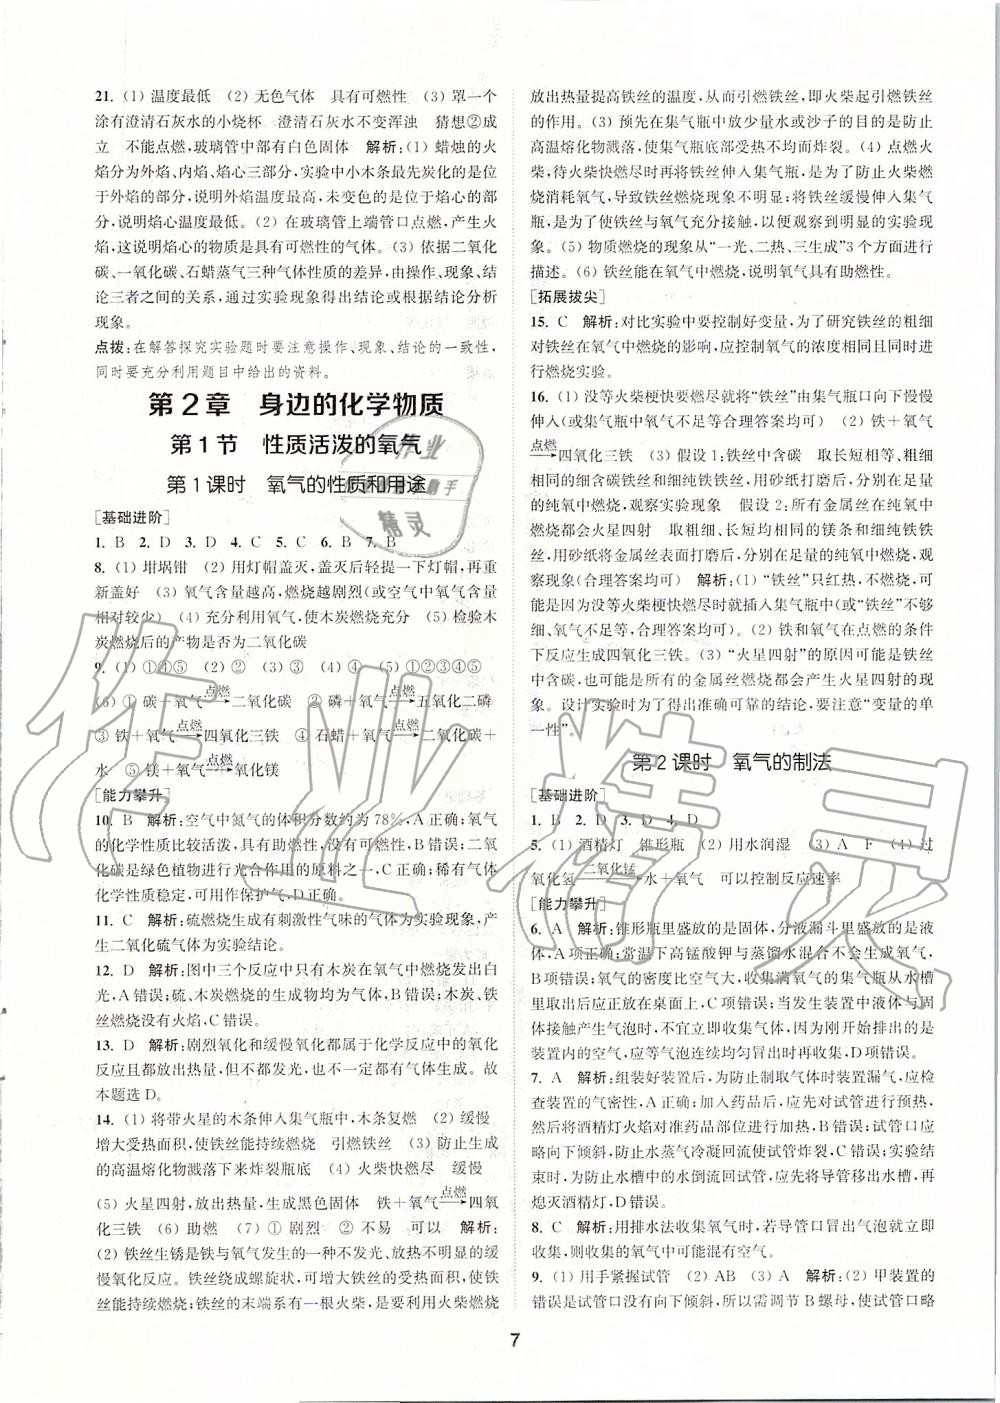 21. (1) 温度最低　(2) 无色气体　具有可燃性　(3) 罩一个
涂有澄清石灰水的小烧杯　澄清石灰水不变浑浊　猜想②成
立　不能点燃,玻璃管中部有白色固体　解析:(1) 蜡烛的火
焰分为外焰、内焰、焰心三部分,实验中小木条最先炭化的是位
于外焰的部分,说明外焰温度最高,未变色的是位于焰心的部
分,说明焰心温度最低。(2) 在玻璃管上端管口点燃,产生火
焰,这说明焰心的物质是具有可燃性的气体。(3) 依据二氧化
碳、一氧化碳、石蜡蒸气三种气体性质的差异,由操作、现象、结
论三者之间的关系,通过实验现象得出结论或根据结论分析
现象。
点拨:在解答探究实验题时要注意操作、现象、结论的一致性,
同时要充分利用题目中给出的资料。
第2章　身边的化学物质
第1节　性质活泼的氧气
第1课时　氧气的性质和用途
[基础进阶]
1. B　2. D　3. D　4. C　5. C　6. B　7. B
8. (1) 坩埚钳　(2) 用灯帽盖灭,盖灭后轻提一下灯帽,再重
新盖好　(3) 氧气含量越高,燃烧越剧烈(或空气中氧气含量
相对较少)　(4) 充分利用氧气,使木炭燃烧充分　(5) 检验木
炭燃烧后的产物是否为二氧化碳
9. (1) ①④⑤　(2) ②　(3) ③　(4) ③④⑤　(5) ①②③④⑤
(6) ① 碳+氧气 点燃→ 二氧化碳　② 磷+氧气 点燃→ 五氧化二磷
③ 铁+氧气 点燃→ 四氧化三铁　④ 石蜡+氧气 点燃→ 二氧化碳+
水　⑤ 镁+氧气 点燃→ 氧化镁
[能力攀升]
10. B　解析:空气中氮气的体积分数约为78%,A正确;氧气
的化学性质比较活泼,具有助燃性,没有可燃性,B错误;二氧
化碳是绿色植物进行光合作用的原料之一,C正确;稀有气体
化学性质稳定,可用作保护气,D正确。
11. C　解析:硫燃烧生成有刺激性气味的气体为实验现象,产
生二氧化硫气体为实验结论。
12. D　解析:图中三个反应中只有木炭在氧气中燃烧发出白
光,A错误;硫、木炭燃烧的生成物均为气体,B错误;木炭、铁
丝燃烧没有火焰,C错误。
13. D　解析:剧烈氧化和缓慢氧化都属于化学反应中的氧化
反应且都放出热量,但不都发光,也不一定都有气体生成。故
本题选D。
14. (1) 将带火星的木条伸入集气瓶中,木条复燃　(2) 缓慢
增大受热面积,使铁丝能持续燃烧　引燃铁丝　(3) 防止生成
的高温熔化物溅落下来炸裂瓶底　(4) 火柴快燃尽　缓慢
(5) 火星四射,放出热量,生成黑色固体　铁+氧气 点燃→ 四氧
化三铁　(6) 助燃　(7) ① 剧烈　② 不易　可以　解析:
(2) 铁丝生锈是铁与氧气发生的一种不发光、放热不明显的缓
慢氧化反应。铁丝绕成螺旋状,可增大铁丝的受热面积,使铁
丝能持续燃烧;铁丝的末端系有一根火柴,是要利用火柴燃烧
放出热量提高铁丝的温度,从而引燃铁丝,即火柴起引燃铁丝
作用。(3) 预先在集气瓶中放少量水或沙子的目的是防止
高温熔化物溅落,使集气瓶底部受热不均而炸裂。(4) 点燃火
柴,待火柴快燃尽时再将铁丝伸入集气瓶,是为了防止火柴燃
烧消耗氧气,导致铁丝燃烧现象不明显;将铁丝缓慢伸入集气
瓶,是为了使铁丝与氧气充分接触,以便观察到明显的实验现
象。(5) 物质燃烧的现象从“一光、二热、三生成”3个方面进行
描述。(6) 铁丝能在氧气中燃烧,说明氧气具有助燃性。
[拓展拔尖]
15. C　解析:对比实验中要控制好变量,为了研究铁丝的粗细
对铁丝在氧气中燃烧的影响,应控制氧气的浓度相同且同时进
行燃烧实验。
16. (1) 没等火柴梗快要燃尽就将“铁丝”由集气瓶口向下慢慢
伸入(或集气瓶中氧气不足等合理答案均可)　(2) 铁+氧气
点燃→ 四氧化三铁　(3) 假设1:铁丝中含碳　取长短相等、粗细
相同的含碳铁丝和细纯铁铁丝,用砂纸打磨后,分别在足量
的纯氧中燃烧,观察实验现象　假设2:所有金属丝在纯氧中
燃烧都会火星四射　取粗细、长短均相同的镁条和细纯铁铁
丝,用砂纸将金属丝表面打磨后,分别在足量的纯氧中燃烧,观
察现象(合理答案均可)　解析:(1) “铁丝”只红热,不燃烧,可
能是因为没等火柴梗快燃尽时就插入集气瓶中(或“铁丝”不够
细、氧气不足等,合理答案均可)。(2) 铁和氧气在点燃的条件
下反应生成四氧化三铁。(3) “火星四射”的原因可能是铁丝
中含碳,也可能是所有的金属丝燃烧都会产生火星四射的现
象。设计实验时为了得出准确可靠的结论,要注意“变量的单
一性”。
第2课时　氧气的制法
[基础进阶]
1. B　2. D　3. D　4. D
5. (1) 酒精灯　锥形瓶　(2) 用水润湿　(3) A　F　(4) 过
氧化氢 二氧化锰→ 水+氧气　可以控制反应速率
[能力攀升]
6. A　解析:锥形瓶里盛放的是固体,分液漏斗里盛放的是液
体,A项正确;常温下高锰酸钾与蒸馏水混合不会生成氧气,
B项错误;氧气的密度比空气大,收集满氧气的集气瓶从水槽
里取出后应正放在桌面上,C项错误;当发生装置中液体与固
体接触产生气泡时,不宜立即收集气体,因为刚开始排出的是
装置内的空气,应等气泡连续均匀冒出时再收集,D项错误。
7. A　解析:组装好装置后,为防止制取气体时装置漏气,应检
查装置的气密性,A正确;加入药品后,应先对试管进行预热,
然后将酒精灯火焰对准药品部位进行加热,B错误;试管口应
略向下倾斜,防止水蒸气冷凝回流使试管炸裂,C错误;实验结
束时,为防止水槽中的水倒流回试管,应先将导管移出水槽,再
熄灭酒精灯,D错误。
8. C　解析:用排水法收集氧气时,若导管口冒出气泡就立即
收集,则收集的氧气中可能混有空气。
9. (1) 用手紧握试管　(2) AB　(3) A　解析:(2) 甲装置的
错误是试管口没有向下倾斜,所以需调节B螺母,使试管口略
7
作业
精灵
作业精灵